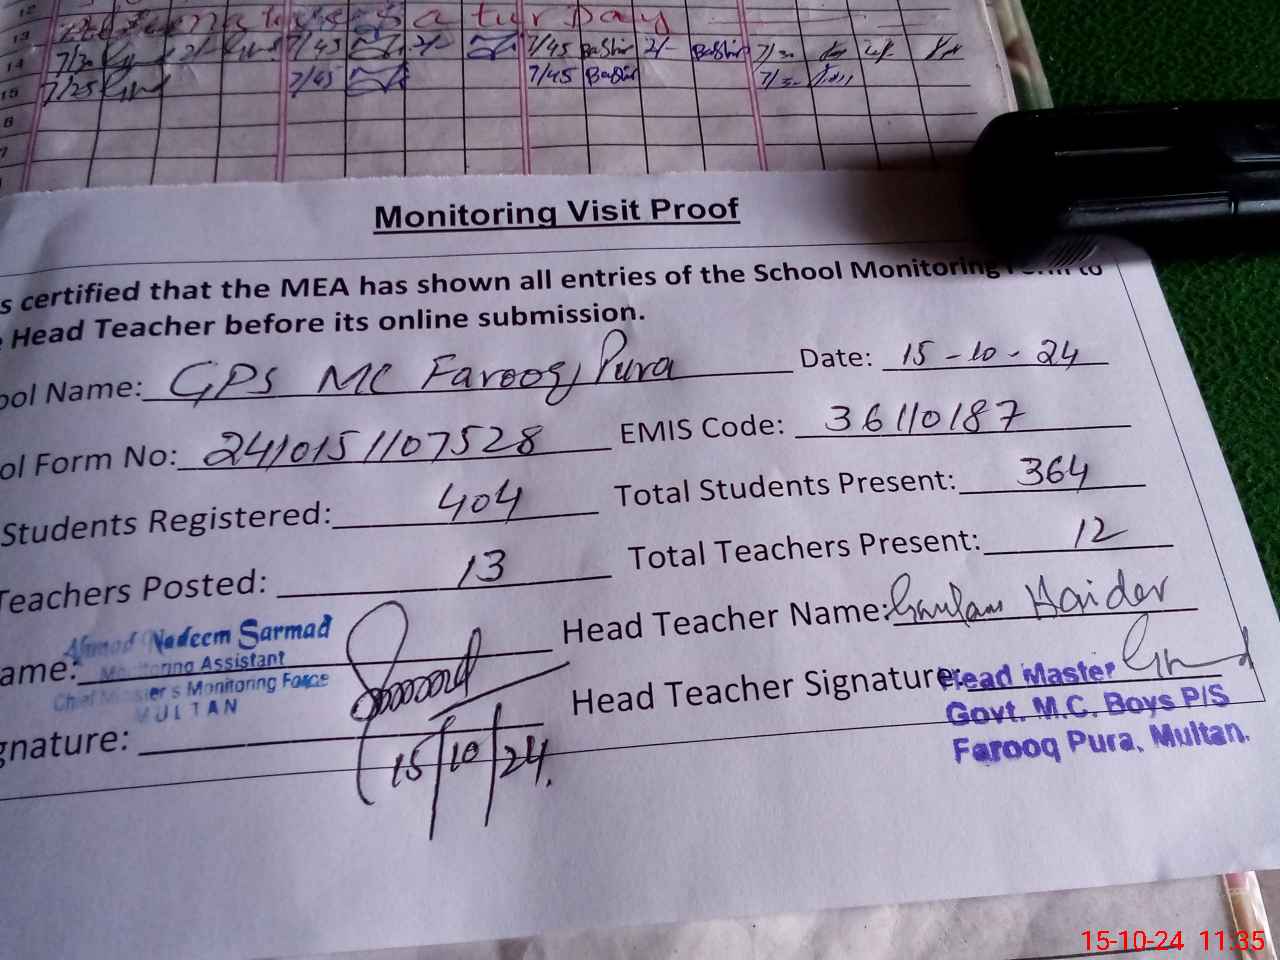 12
13
a tur Day
7/30 2/- 7/45 2/- 7/45 Bashir 2/- Bashir 7/30
14
7/25 7/45 7/45 Bashir 7/30
15
6
7
Monitoring Visit Proof
s certified that the MEA has shown all entries of the School Monitoring Form to
Head Teacher before its online submission.
ool Name: GPS MC Farooq Pura Date: 15-10-24
ol Form No: 2410151107528 EMIS Code: 36110187
Students Registered: 404 Total Students Present: 364
Teachers Posted: 13 Total Teachers Present: 12
Head Teacher Name: Ghulam Haider
ame: Ahmad Nadeem Sarmad
Monitoring Assistant
Chief Minister's Monitoring Force
MULTAN
Head Teacher Signature:
Head Master
Govt. M.C. Boys P/S
Farooq Pura, Multan.
gnature:
15/10/24.
15-10-24 11:35